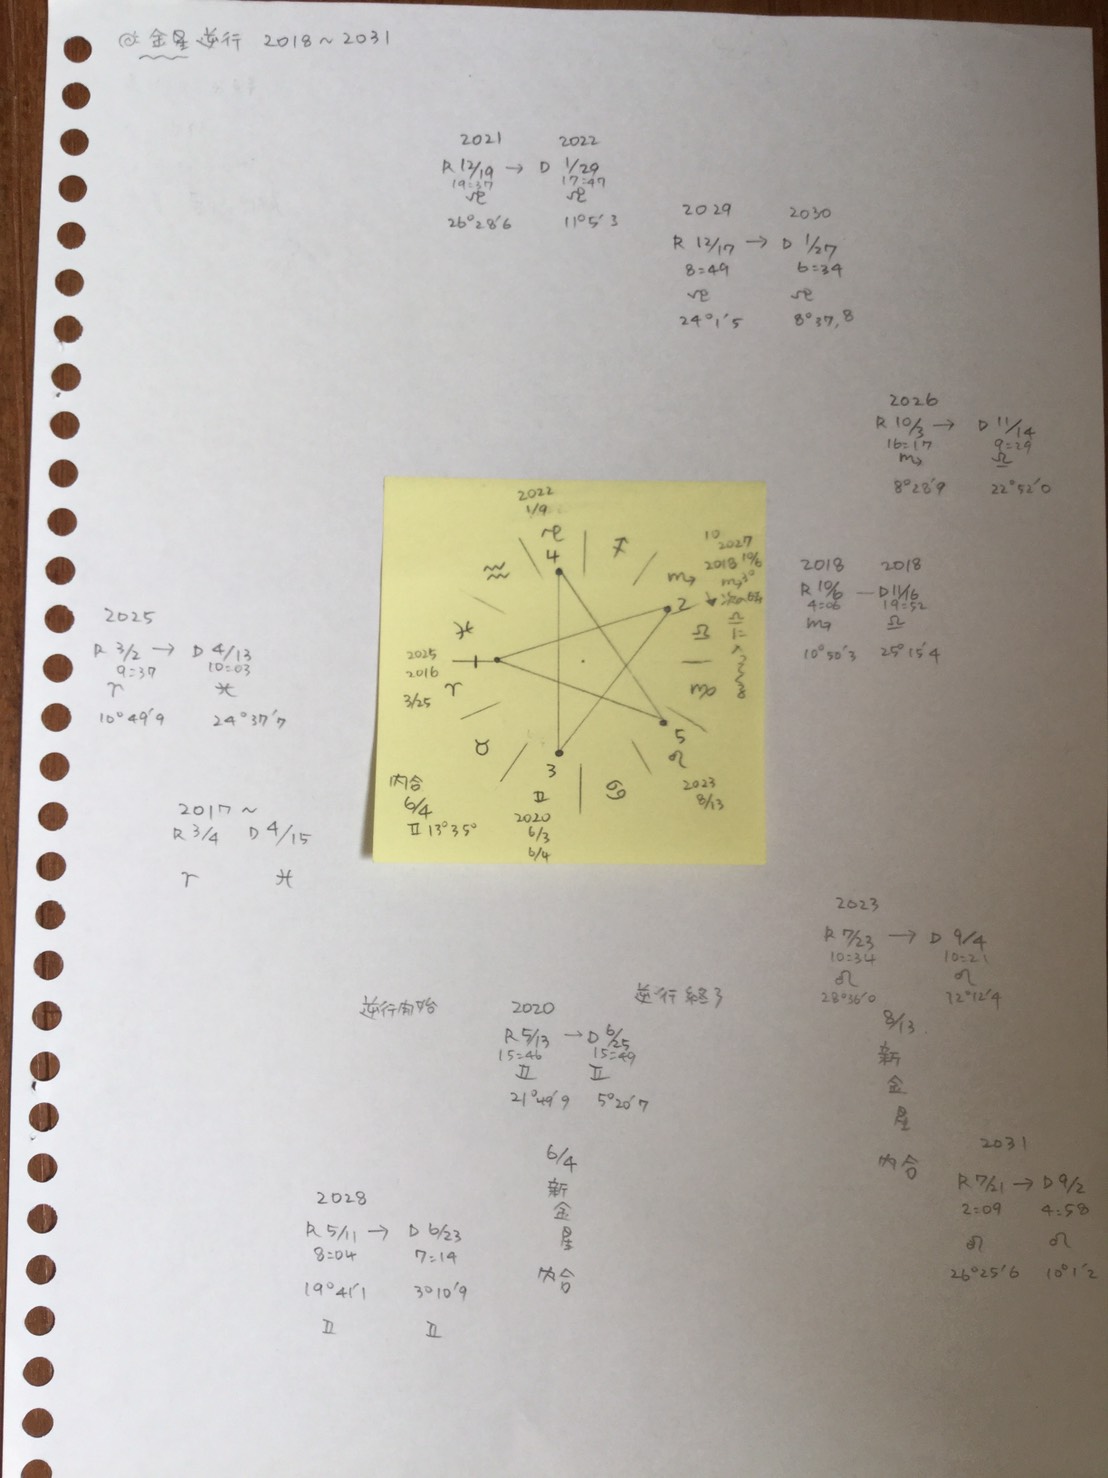 金星逆行 2018~2031
2021 2022
R 12/19 → D 1/29
19=37 17=47
♑ ♑
26°28'6 11°5'3
2029 2030
R 12/17 → D 1/27
8=49 6=34
♑ ♑
24°1'5 8°37,8
2026
R 10/3 → D 11/14
16=17 9=29
♏ ♎
8°28'9 22°52'0
2018 2018
R 10/6 — D 11/16
4=06 19=52
♏ ♎
10°50'3 25°15'4
2025
R 3/2 → D 4/13
9=37 10=03
♈ ♓
10°49'9 24°37'7
2017~
R 3/4 D 4/15
♈ ♓
2022
1/9
♑
4
♐
♒
10
2027
2018 10/6
♏ ♏3°
2
♎
♎
♓
2025
2016
3/25
♈
♍
5
♌
2023
8/13
♉
3
♊
2020
6/3
6/4
♋
内合
6/4
♊13°35°
2023
R 7/23 → D 9/4
10=34 10=21
♌ ♌
28°36'0 12°12'4
8/13
新
金
星
内合
逆行開始
逆行終了
2020
R 5/13 → D 6/25
15=46 15=49
♊ ♊
21°49'9 5°20'7
6/4
新
金
星
内合
2028
R 5/11 → D 6/23
8=04 7=14
19°41'1 3°10'9
♊ ♊
2031
R 7/21 → D 9/2
2=09 4=58
♌ ♌
26°25'6 10°1'2